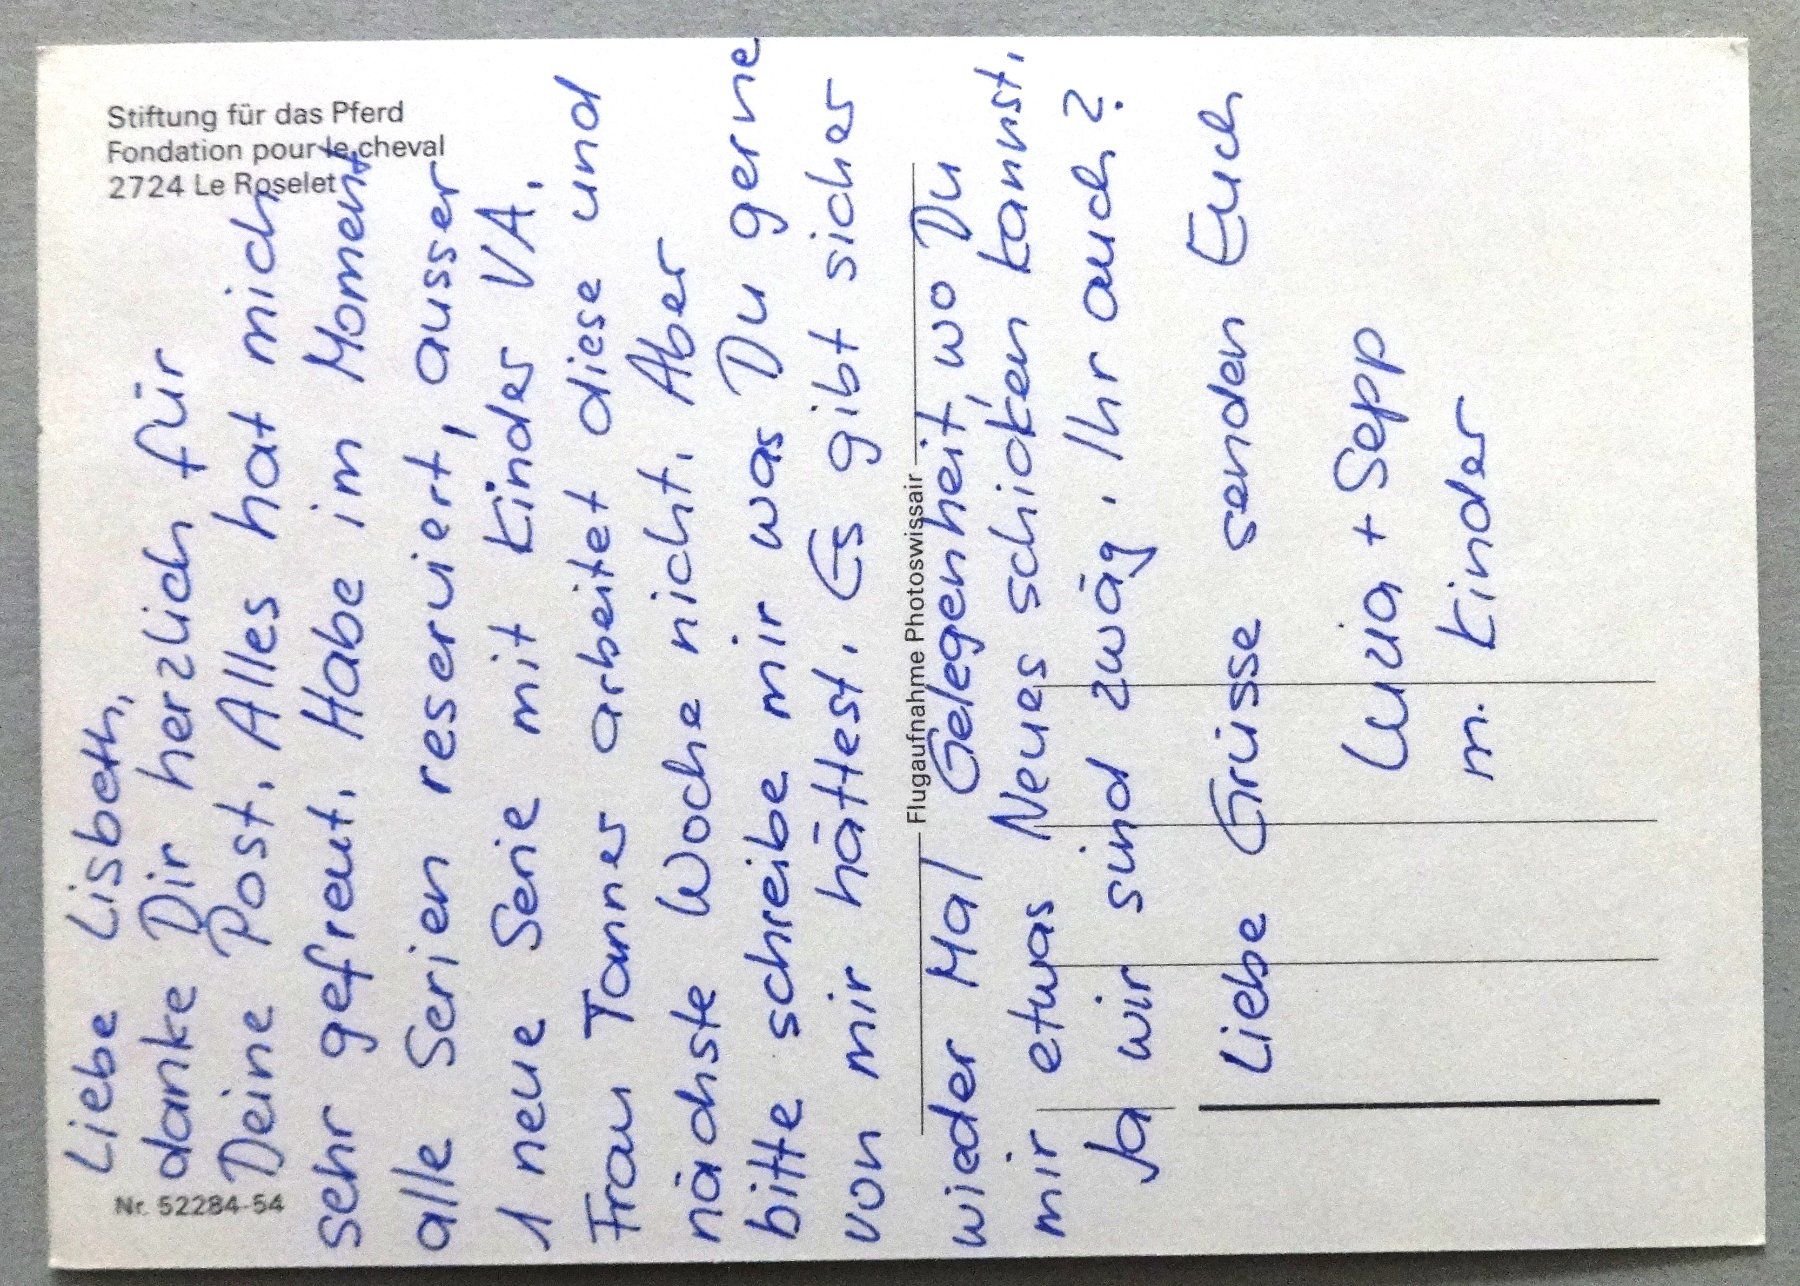 Stiftung für das Pferd
Fondation pour le cheval
2724 Le Roselet
Nr. 52284-54
Flugaufnahme Photoswissair
Liebe Lisbeth,
danke Dir herzlich für
Deine Post. Alles hat mich
sehr gefreut. Habe im Moment
alle Serien reserviert, ausser
1 neue Serie mit Kinder VA.
Frau Tanner arbeitet diese und
nächste Woche nicht. Aber
bitte schreibe mir was Du gerne
von mir hättest. Es gibt sicher
wieder Mal Gelegenheit, wo Du
mir etwas Neues schicken kannst.
Ja wir sind zwäg. Ihr auch?
Liebe Grüsse senden Euch
Luzia + Sepp
m. Kinder